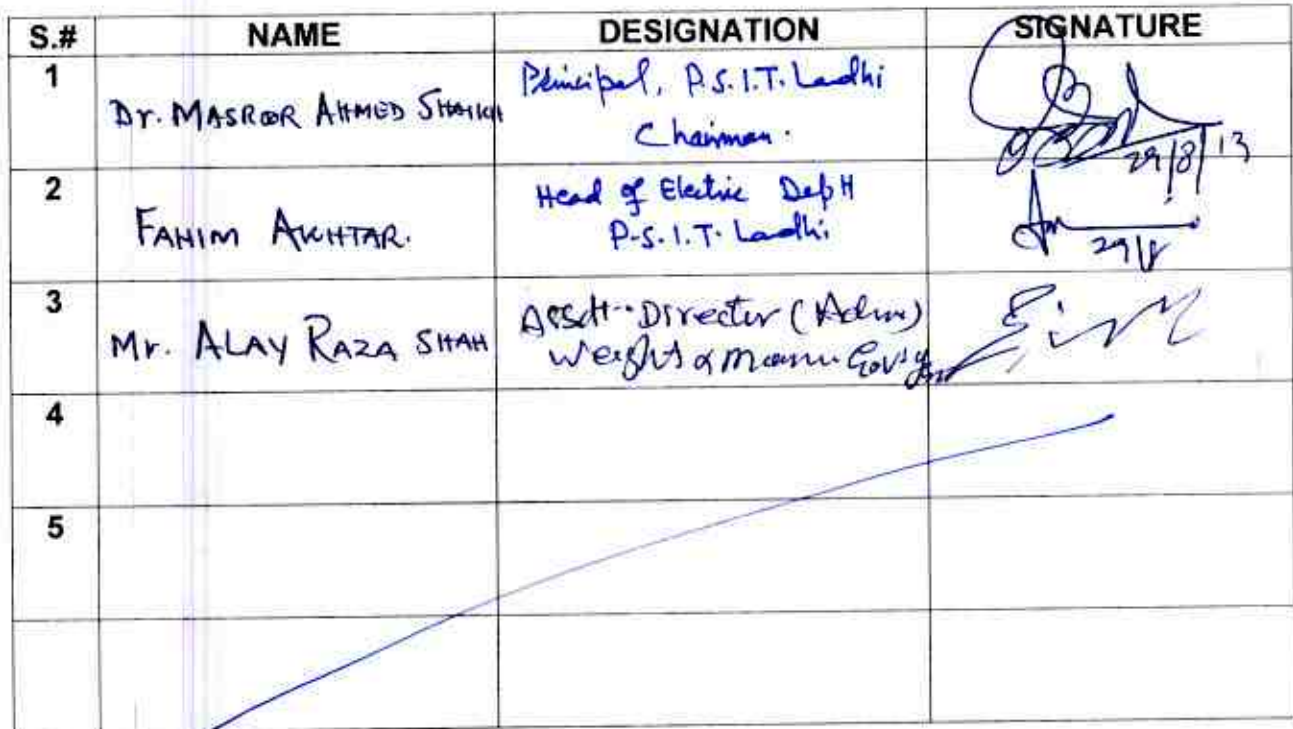 S.# NAME DESIGNATION SIGNATURE
1
Dr. MASROOR AHMED SHAIKH
Principal, P.S.I.T. Landhi
Chairman.
29/8/13
2
FAHIM AKHTAR.
Head of Electric Deptt
P.S.I.T. Landhi
29/8
3
Mr. ALAY RAZA SHAH
Asstt. Director (Admn)
Weights &
4
5